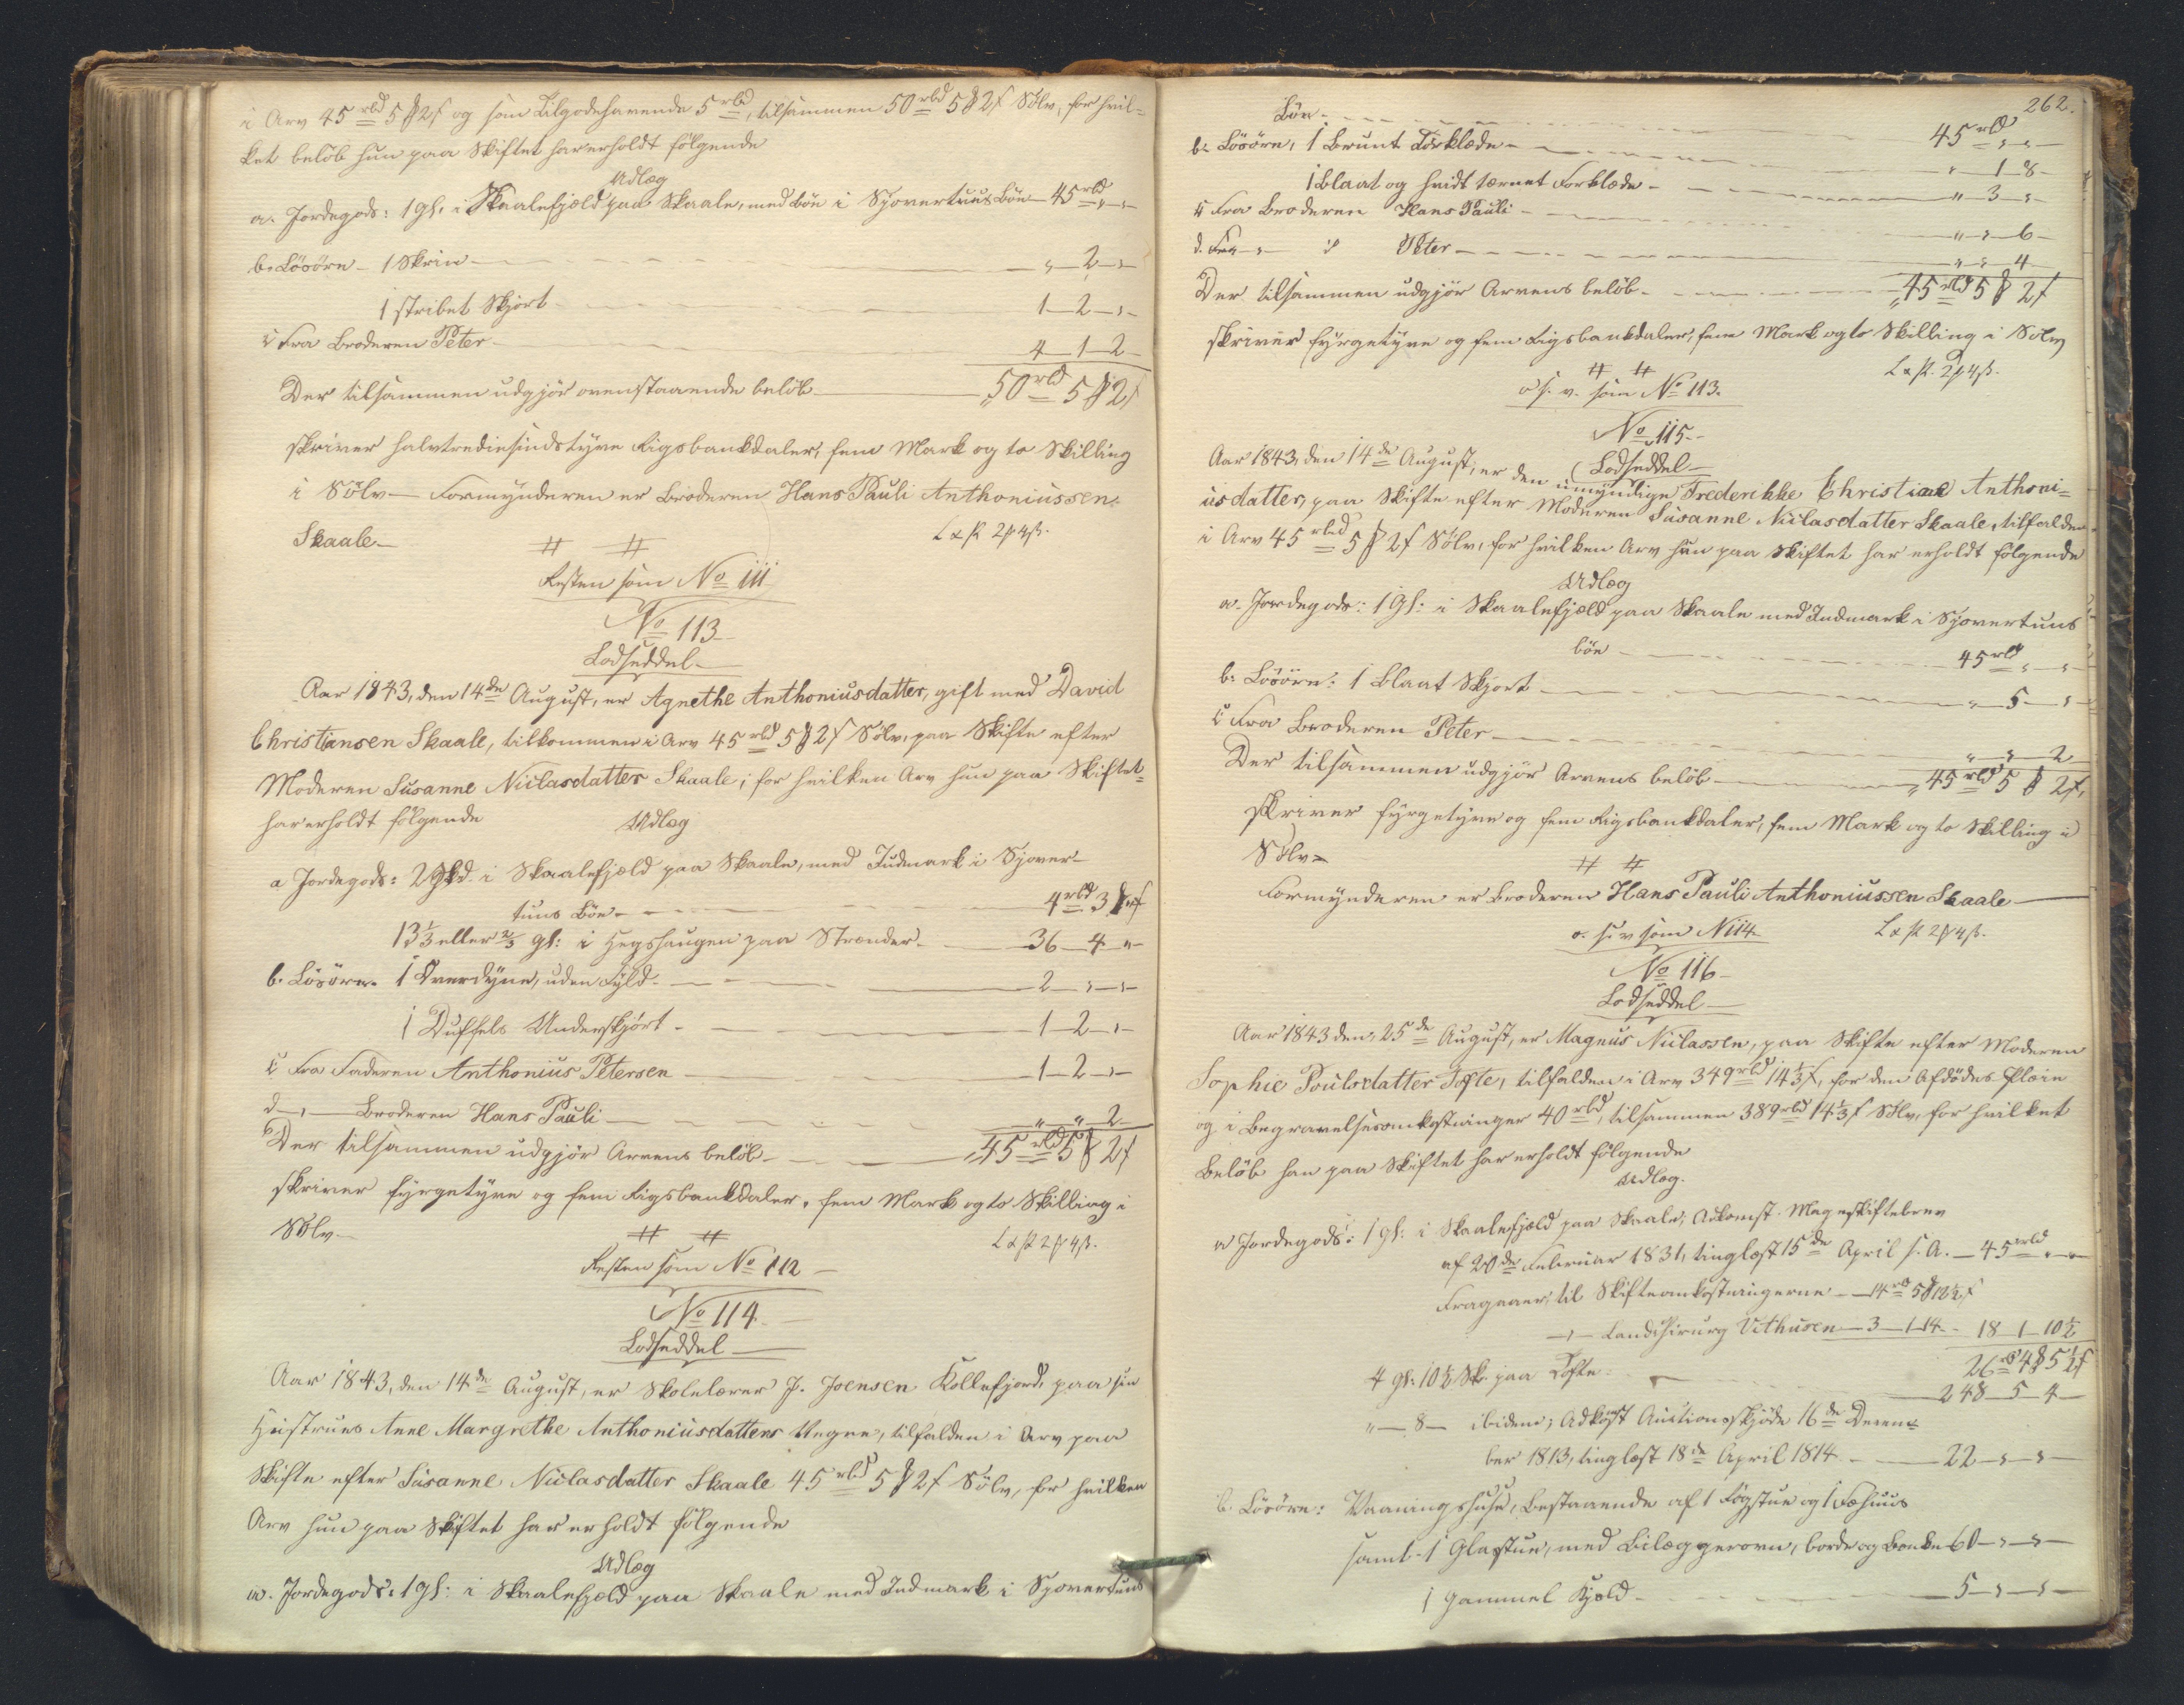 i Arv 45 rbd 5 ₻ 2 ß og som Tilgodehavende 5 rbd, tilsammen 50 rbd 5 ₻ 2 ß Sølv, for hvil-
ket beløb hun paa Skiftet har erholdt følgende
Udlæg
a. Jordegods: 1 Gl. i Skaalefjæld paa Skaale, med bøn i Sjovertuns Bøn - 45 rbd „ - „ -
b. Løsøre - 1 Skrin - „ - 2 - „ -
1 stribet Skjørt - 1 - 2 - „ -
c Fra Broderen Peter - 4 - 1 - 2 -
Der tilsammen udgjør ovenstaaende beløb - 50 rbd 5 ₻ 2 ß
skriver halvtrediesindstyve Rigsbankdaler, fem Mark og to Skilling
i Sølv - Formynderen er Broderen Hans Pauli Anthoniussen
Skaale -
Resten som No 111
No 113
Lodseddel -
Aar 1843, den 14de August, er Agnethe Anthoniusdatter, gift med David
Christiansen Skaale, tilkommen i Arv 45 rbd 5 ₻ 2 ß Sølv, paa Skifte efter
Moderen Susanne Niclasdatter Skaale; for hvilken Arv hun paa Skiftet-
har erholdt følgende
Udlæg
a Jordegods: 2 Skd. i Skaalefjæld paa Skaale, med Indmark i Sjover-
tuns Bøn - 4 rbd 3 ₻ „ ß
13⅓ eller ⅔ Gl: i Hegshaugen paa Strænder - 36 - 4 - „ -
b. Løsøre. 1 Overdyne, uden Fyld - 2 - „ - „ -
1 Duffels Underskjørt - 1 - 2 - „ -
c Fra Faderen Anthonius Petersen - 1 - 2 - „ -
d - „ - Broderen Hans Pauli - „ - „ - 2 -
Der tilsammen udgjør Arvens beløb - 45 rbd 5 ₻ 2 ß
skriver fyrgetyve og fem Rigsbankdaler, fem Mark og to Skilling i
Sølv -
Resten som No 112 -
No 114.
Lodseddel -
Aar 1843, den 14de August, er Skolelærer J. Joensen Kollefjord, paa sin
Hustrues Anne Margrethe Anthoniusdatters Vegne, tilfalden i Arv paa
Skifte efter Susanne Niclasdatter Skaale 45 rbd 5 ₻ 2 ß Sølv, for hvilken
Arv hun paa Skiftet har erholdt følgende
Udlæg
a. Jordegods: 1 Gl: i Skaalefjæld paa Skaale med Indmark i Sjovertuns
262.
Bøn - 45 rbd „ - „ -
b. Løsøre, 1 Brunt Tørklæde - „ - 1 - 8 -
1 blaat og hvidt tærnet Forklæde - „ - 3 - „ -
c Fra Broderen Hans Pauli - „ - „ - 6 -
d. Fra - „ - Peter - „ - „ - 4 -
Der tilsammen udgjør Arvens beløb - 45 rbd 5 ₻ 2 ß
skriver fyrgetyve og fem Rigsbankdaler, fem Mark og to Skilling i Sølv
o. s. v. som No 113.
No 115.
Lodseddel -
Aar 1843, den 14de August, er den umyndige Frederikke Christiane Anthoni-
usdatter, paa Skifte efter Moderen Susanne Niclasdatter Skaale, tilfalden
i Arv 45 rbd 5 ₻ 2 ß Sølv, for hvilken Arv hun paa Skiftet har erholdt følgende
Udlæg
a. Jordegods: 1 Gl: i Skaalefjæld paa Skaale med Indmark i Sjovertuns
bøn - 45 rbd „ - „ -
b. Løsøre: 1 blaat Skjørt - „ - 5 - „ -
c Fra Broderen Peter - „ - „ - 2 -
Der tilsammen udgjør Arvens beløb - 45 rbd 5 ₻ 2 ß
skriver fyrgetyve og fem Rigsbankdaler, fem Mark og to Skilling i
Sølv -
Formynderen er Broderen Hans Pauli Anthoniussen Skaale -
o. s. v som N 114
No 116 -
Lodseddel -
Aar 1843 den 25de August, er Magnus Niclassen, paa Skifte efter Moderen
Sophie Poulsdatter Tofte, tilfalden i Arv 349 rbd 14⅓ ß, for den Afdødes Pleie
og i Begravelsesomkostninger 40 rbd, tilsammen 389 rbd 14⅓ ß Sølv, for hvilket
Beløb han paa Skiftet har erholdt følgende
Udlæg.
a Jordegods: 1 Gl: i Skaalefjæld paa Skaale, Adkomst Mageskiftebrev
af 20de Februar 1831, tinglæst 15de April s. A. - 45 rbd „ - „ -
Fragaaer, til Skifteomkostningerne - 14 rbd 5 ₻ 12½ ß
- „ - Landchirurg Vithusen - 3 - 1 - 14 - 18 - 1 - 10½
26 rbd 4 ₻ 5½ ß
4 Gl: 10½ Sk. paa Tofte - 248 - 5 - 4 -
„ - 8 - ibidem; Adkomst Auctionsskjøde 16de Decem-
ber 1813, tinglæst 18de April 1814 - 22 - „ - „ -
b. Løsøre: Vaaningshuse, bestaaende af 1 Røgstue og 1 Fæhuus
samt 1 Glastue, med Bilæggerovn, borde og bænke 60 - „ - „ -
1 gammel Kjeld - 5 - „ - „ -